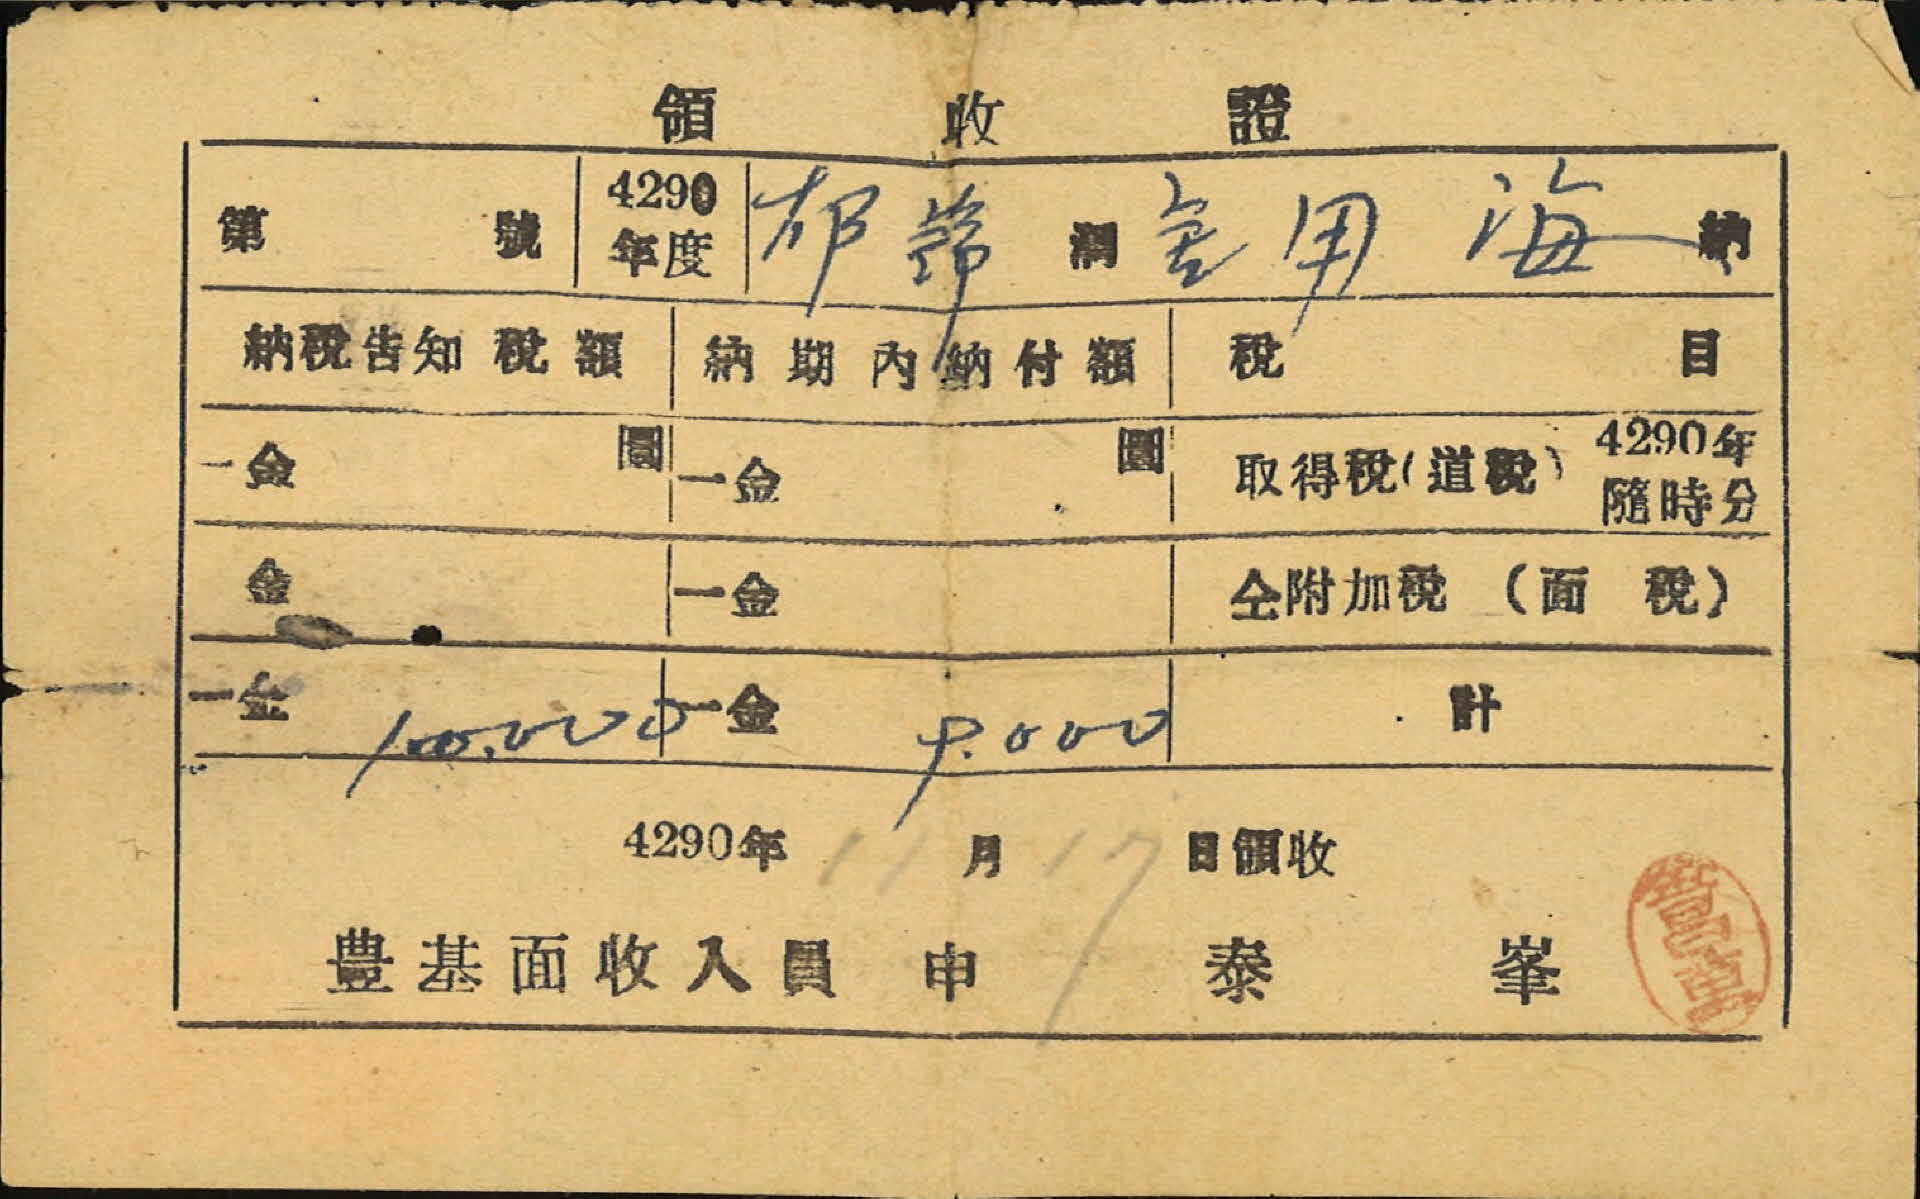 領收證
第 號 4290年度 郁錦洞 用海 納
納稅告知稅額 納期內納付額 稅目
一金 圓 一金 圓 取得稅(道稅) 4290年隨時分
金 一金 仝附加稅 (面稅)
一金 100.000 一金 9.000 計
4290年 11月 17日領收
豊基面收入員 申泰峯